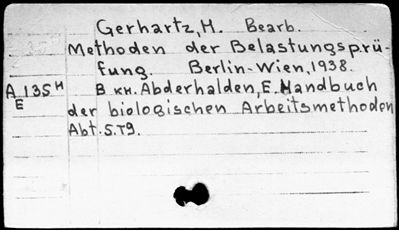 Gerhartz, H. Bearb.
Methoden der Belastungsprü-
fung. Berlin-Wien, 1938.
A 135 H
E
В кн. Abderhalden, E. Handbuch
der biologischen Arbeitsmethoden
Abt. 5. T9.